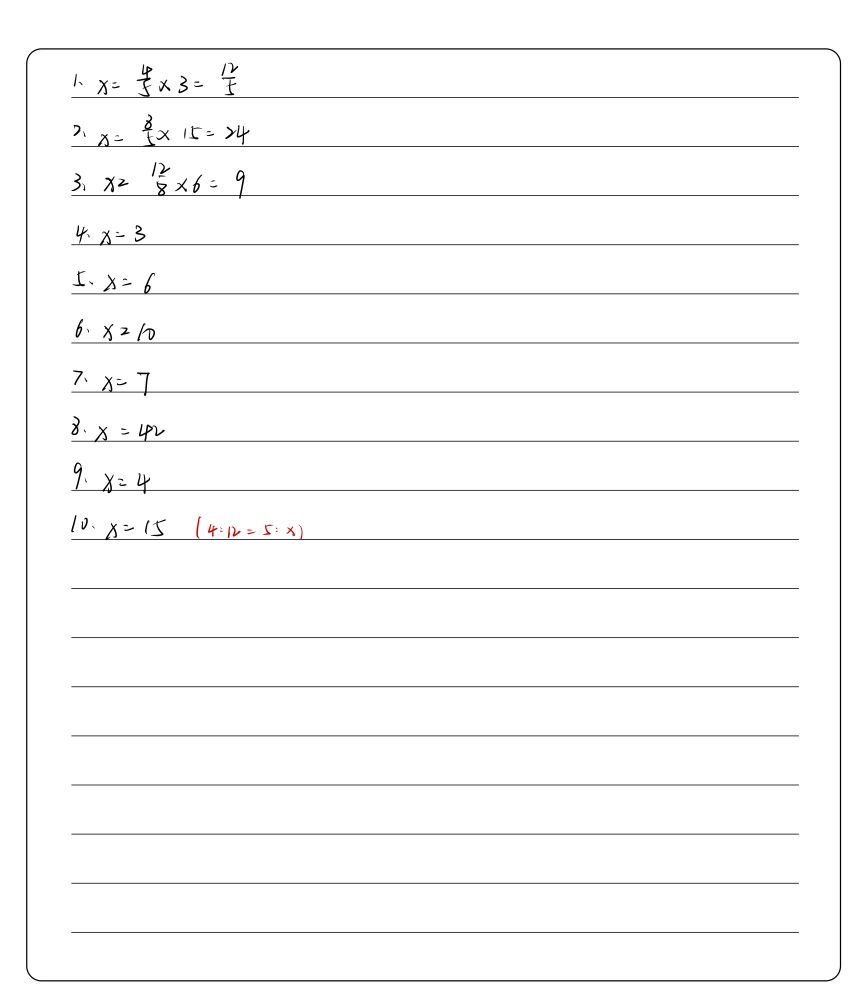 1、 x = 4/5 × 3 = 12/5
2、 x = 8/5 × 15 = 24
3、 x = 12/8 × 6 = 9
4、 x = 3
5、 x = 6
6、 x = 10
7、 x = 7
8、 x = 42
9、 x = 4
10、 x = 15 (4:12 = 5:x)